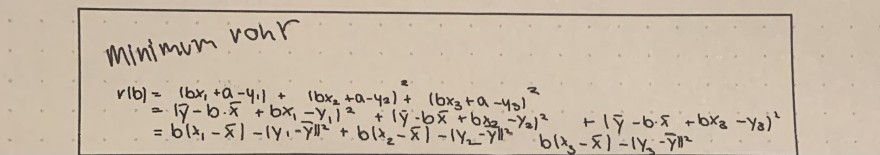 minimum von r
r(b) = (bx₁ + a - y₁) + (bx₂ + a - y₂)² + (bx₃ + a - y₃)²
= (ȳ - b · x̄ + bx₁ - y₁)² + (ȳ - bx̄ + bx₂ - y₂)² + (ȳ - b · x̄ + bx₃ - y₃)²
= b(x₁ - x̄) - (y₁ - ȳ))² + b(x₂ - x̄) - (y₂ - ȳ))² b(x₃ - x̄) - (y₃ - ȳ))²